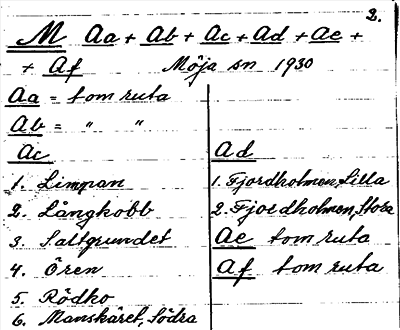 2.
M Aa + Ab + Ac + Ad + Ae +
+ Af Möja sn 1930
Aa = tom ruta
Ab = " "
Ac
1. Limpan
2. Långkobb
3. Saltgrundet
4. Ören
5. Rödko
6. Manskäret, Södra
Ad
1. Fjordholmen, Lilla
2. Fjordholmen, Stora
Ae tom ruta
Af tom ruta